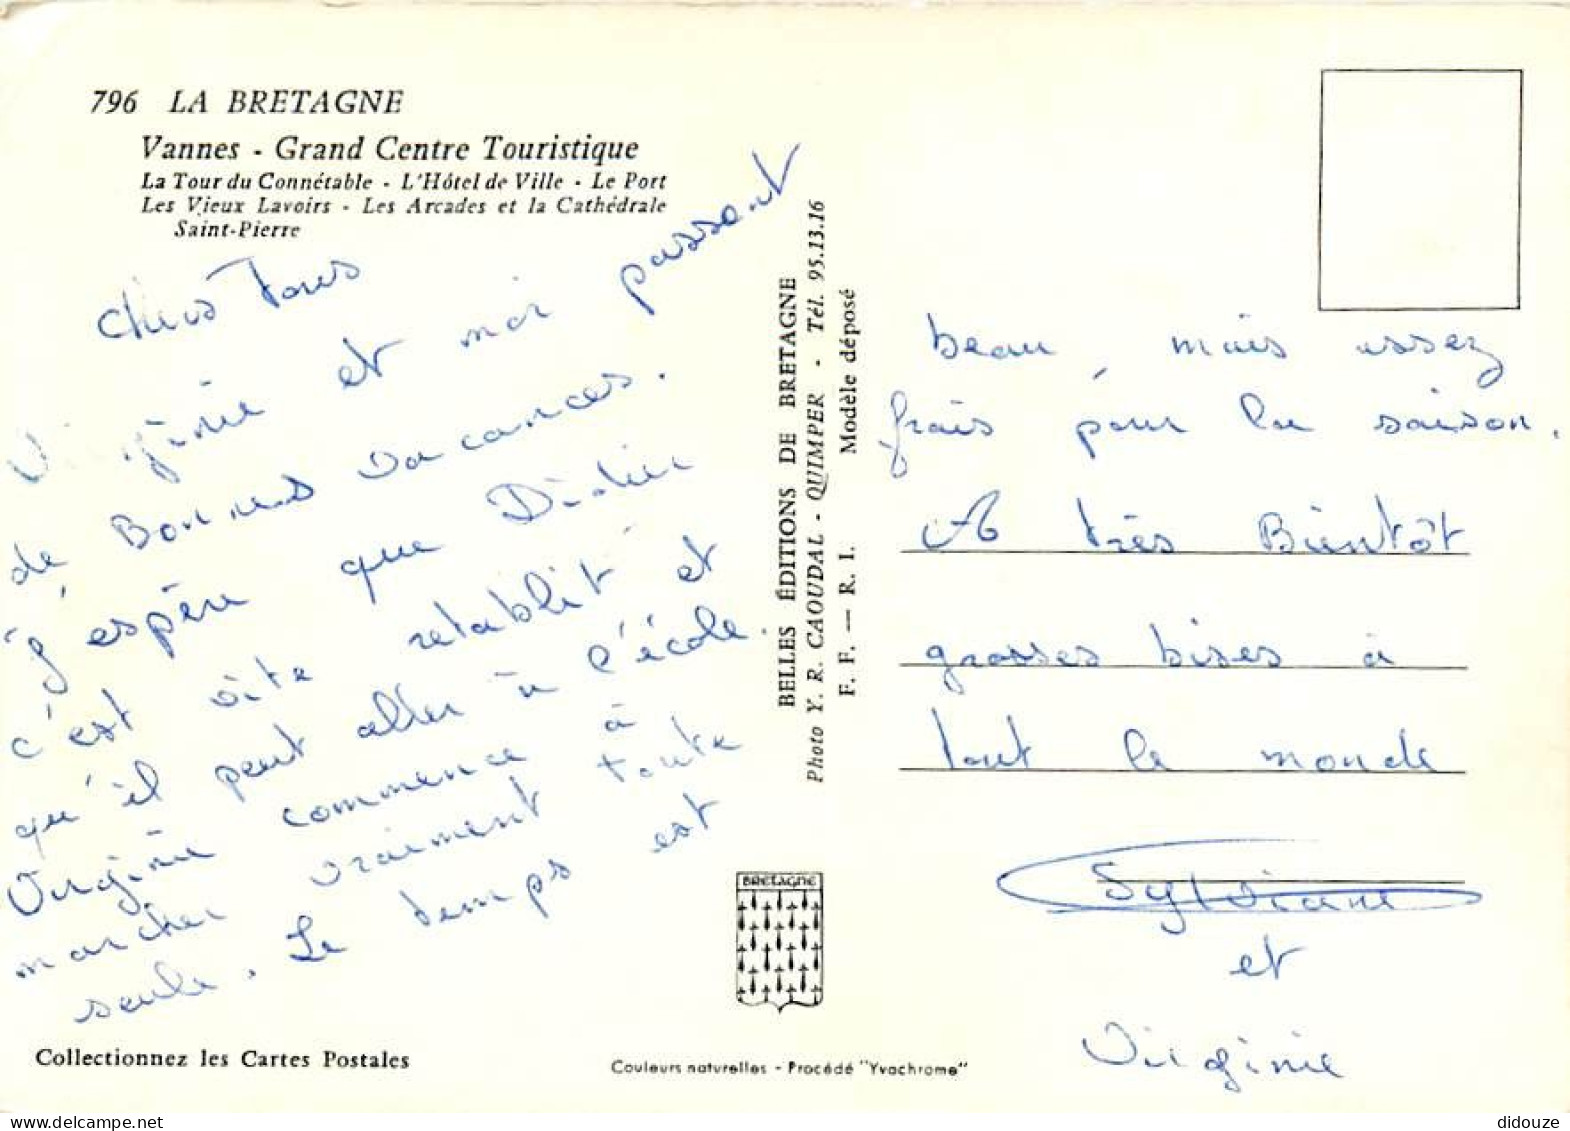 796 LA BRETAGNE
Vannes - Grand Centre Touristique
La Tour du Connétable - L'Hôtel de Ville - Le Port
Les Vieux Lavoirs - Les Arcades et la Cathédrale
Saint-Pierre
Chers Tous
Virginie et moi passont
de Bonnes vacances.
J'espère que Didier
c'est vite retablit et
qu'il peut aller à l'école.
Virginie commence à
marcher vraiment toute
seule. Le temps est
beau, mais assez
frais pour la saison.
A très Bientôt
grosses bises à
tout le monde
Sylviane
et
Virginie
BELLES ÉDITIONS DE BRETAGNE
Photo Y. R. CAOUDAL - QUIMPER - Tél. 95.13.16
F. F. — R. I. Modèle déposé
BRETAGNE
Collectionnez les Cartes Postales
Couleurs naturelles - Procédé "Yvachrome"
didouze